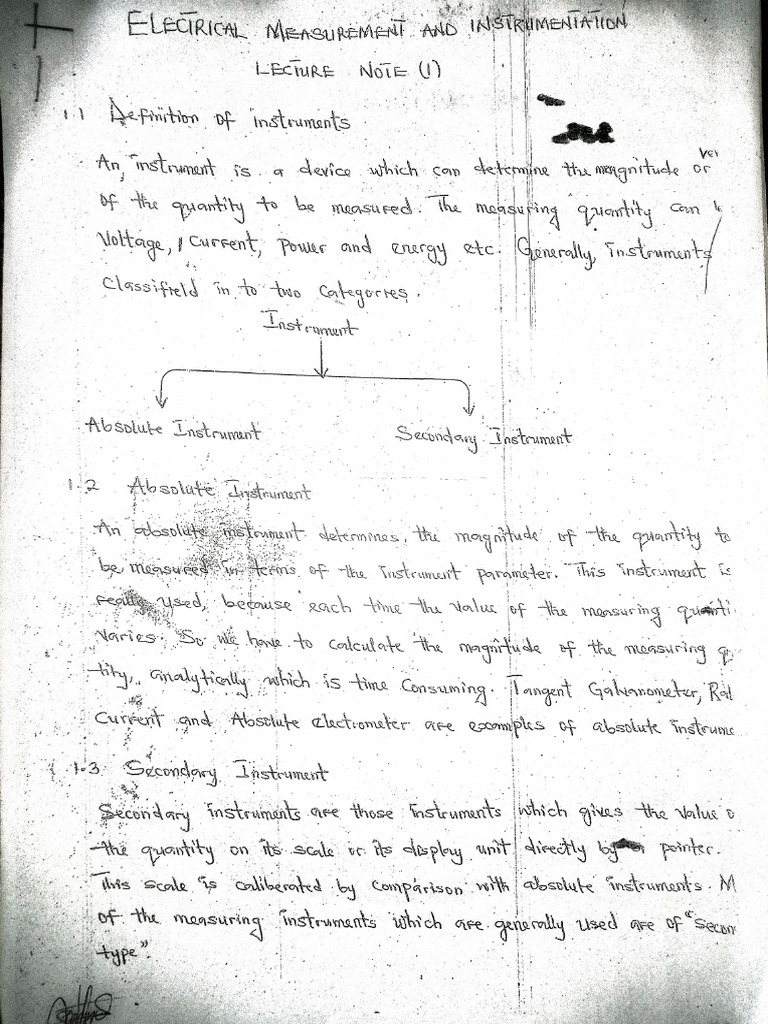 ELECTRICAL MEASUREMENT AND INSTRUMENTATION
LECTURE NOTE (1)
1.1 Definition of instruments
An instrument is a device which can determine the magnitude or
of the quantity to be measured. The measuring quantity can
Voltage, Current, power and energy etc. Generally, instruments
Classifield in to two Categories.
Instrument
Absolute Instrument Secondary Instrument
1.2 Absolute Instrument
An absolute instrument determines, the magnitude of the quantity to
be measured in terms of the instrument parameter. This instrument is
used, because each time the value of the measuring quanti
varies. So we have to calculate the magnitude of the measuring q
tity, analytically which is time Consuming. Tangent Galvanometer, Ral
Current and Absolute electrometer are examples of absolute instrume
1.3 Secondary Instrument
Secondary instruments are those instruments which gives the value o
the quantity on its scale or its display unit directly by pointer.
This scale is caliberated by comparison with absolute instruments. M
of the measuring instruments which are generally used are of "Secon
type".